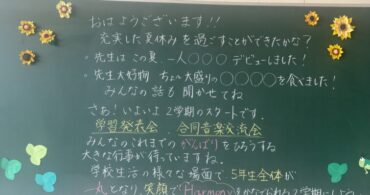 おはようございます!!
充実した夏休みを過ごすことができたかな?
・先生はこの夏、一人○○○デビューしました!
・先生大好物 ちょい大盛りの○○○○を食べました!
みんなの話も聞かせてね
さあ!いよいよ2学期のスタートです。
学習発表会 合同音楽交流会
みんなのこれまでのがんばりをひろうする
大きな行事が待っていますね。
学校生活の様々な場面で5年生全体が
一丸となり、笑顔でHarmonyをかなでられた2学期にしよう